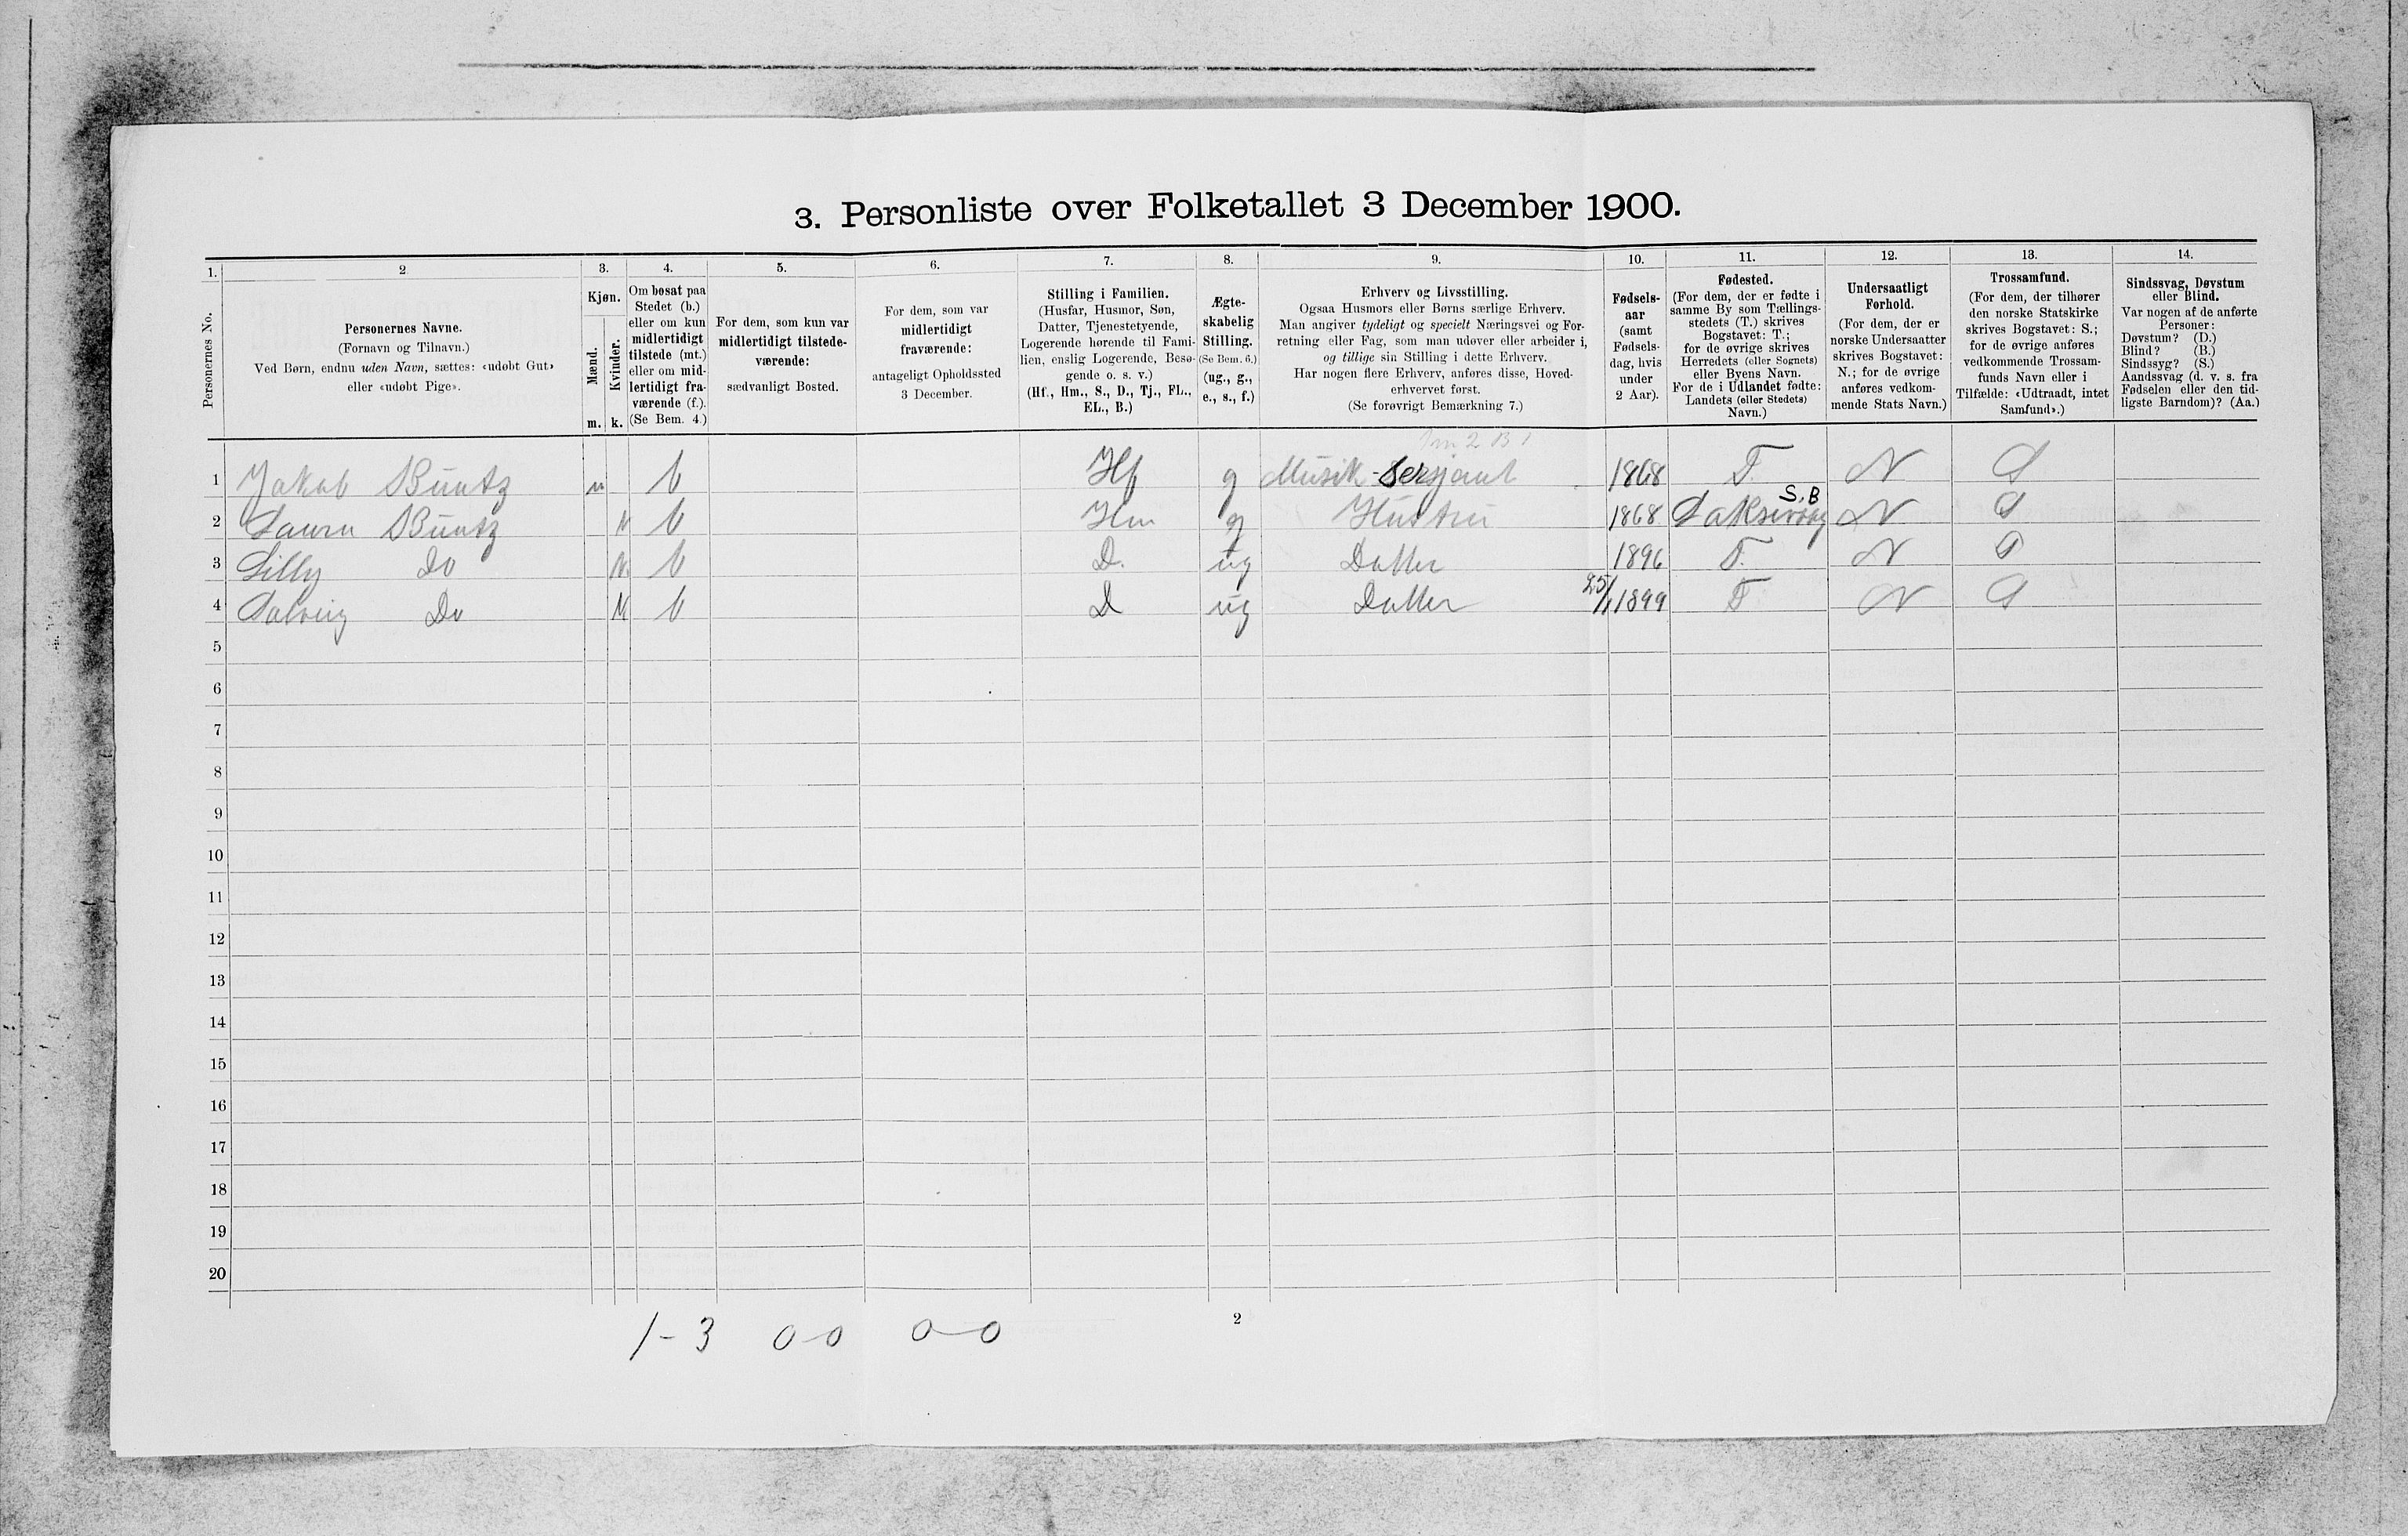 3. Personliste over Folketallet 3 December 1900.
1. 2 3. 4. 5. 6. 7. 8. 9. 10. 11. 12. 13. 14.
Personernes No.
Personernes Navne.
(Fornavn og Tilnavn.)
Ved Børn, endnu uden Navn, sættes: «udøbt Gut»
eller «udøbt Pige».
Kjøn.
Mænd.
Kvinder.
m. k.
Om bosat paa
Stedet (b.)
eller om kun
midlertidigt
tilstede (mt.)
eller om mid-
lertidigt fra-
værende (f.).
(Se Bem. 4.)
For dem, som kun var
midlertidigt tilstede-
værende:
sædvanligt Bosted.
For dem, som var
midlertidigt
fraværende:
antageligt Opholdssted
3 December.
Stilling i Familien.
(Husfar, Husmor, Søn,
Datter, Tjenestetyende,
Logerende hørende til Fami-
lien, enslig Logerende, Besø-
gende o. s. v.)
(Hf., Hm., S., D., Tj., FL.,
EL., B.)
Ægte-
skabelig
Stilling.
(Se Bem. 6.)
(ug., g.,
e., s., f.)
Erhverv og Livsstilling.
Ogsaa Husmors eller Børns særlige Erhverv.
Man angiver tydeligt og specielt Næringsvei og For-
retning eller Fag, som man udøver eller arbeider i,
og tillige sin Stilling i dette Erhverv.
Har nogen flere Erhverv, anføres disse, Hoved-
erhvervet først.
(Se forøvrigt Bemærkning 7.)
Fødsels-
aar
(samt
Fødsels-
dag, hvis
under
2 Aar).
Fødested.
(For dem, der er fødte i
samme By som Tællings-
stedets (T.) skrives
Bogstavet: T.;
for de øvrige skrives
Herredets (eller Sognets)
eller Byens Navn.
For de i Udlandet fødte:
Landets (eller Stedets)
Navn.)
Undersaatligt
Forhold.
(For dem, der er
norske Undersaatter
skrives Bogstavet:
N.; for de øvrige
anføres vedkom-
mende Stats Navn.)
Trossamfund.
(For dem, der tilhører
den norske Statskirke
skrives Bogstavet: S.;
for de øvrige anføres
vedkommende Trossam-
funds Navn eller i
Tilfælde: «Udtraadt, intet
Samfund».)
Sindssvag, Døvstum
eller Blind.
Var nogen af de anførte
Personer:
Døvstum? (D.)
Blind? (B.)
Sindssyg? (S.)
Aandssvag (d. v. s. fra
Fødselen eller den tid-
ligste Barndom)? (Aa.)
1 Jakob Buntz m b Hf g Musik-Sersjant 1868 T. N S
S. B
2 Laura Buntz k b Hm g Hustru 1868 Laksevaag N S
3 Lilly Do k. b D. ug Datter 1896 T. N S
4 Solveig Do k b D ug Datter 25/1 1899 T N S
5
6
7
8
9
10
11
12
13
14
15
16
17
18
19
20
1-3 0-0 0-0
2